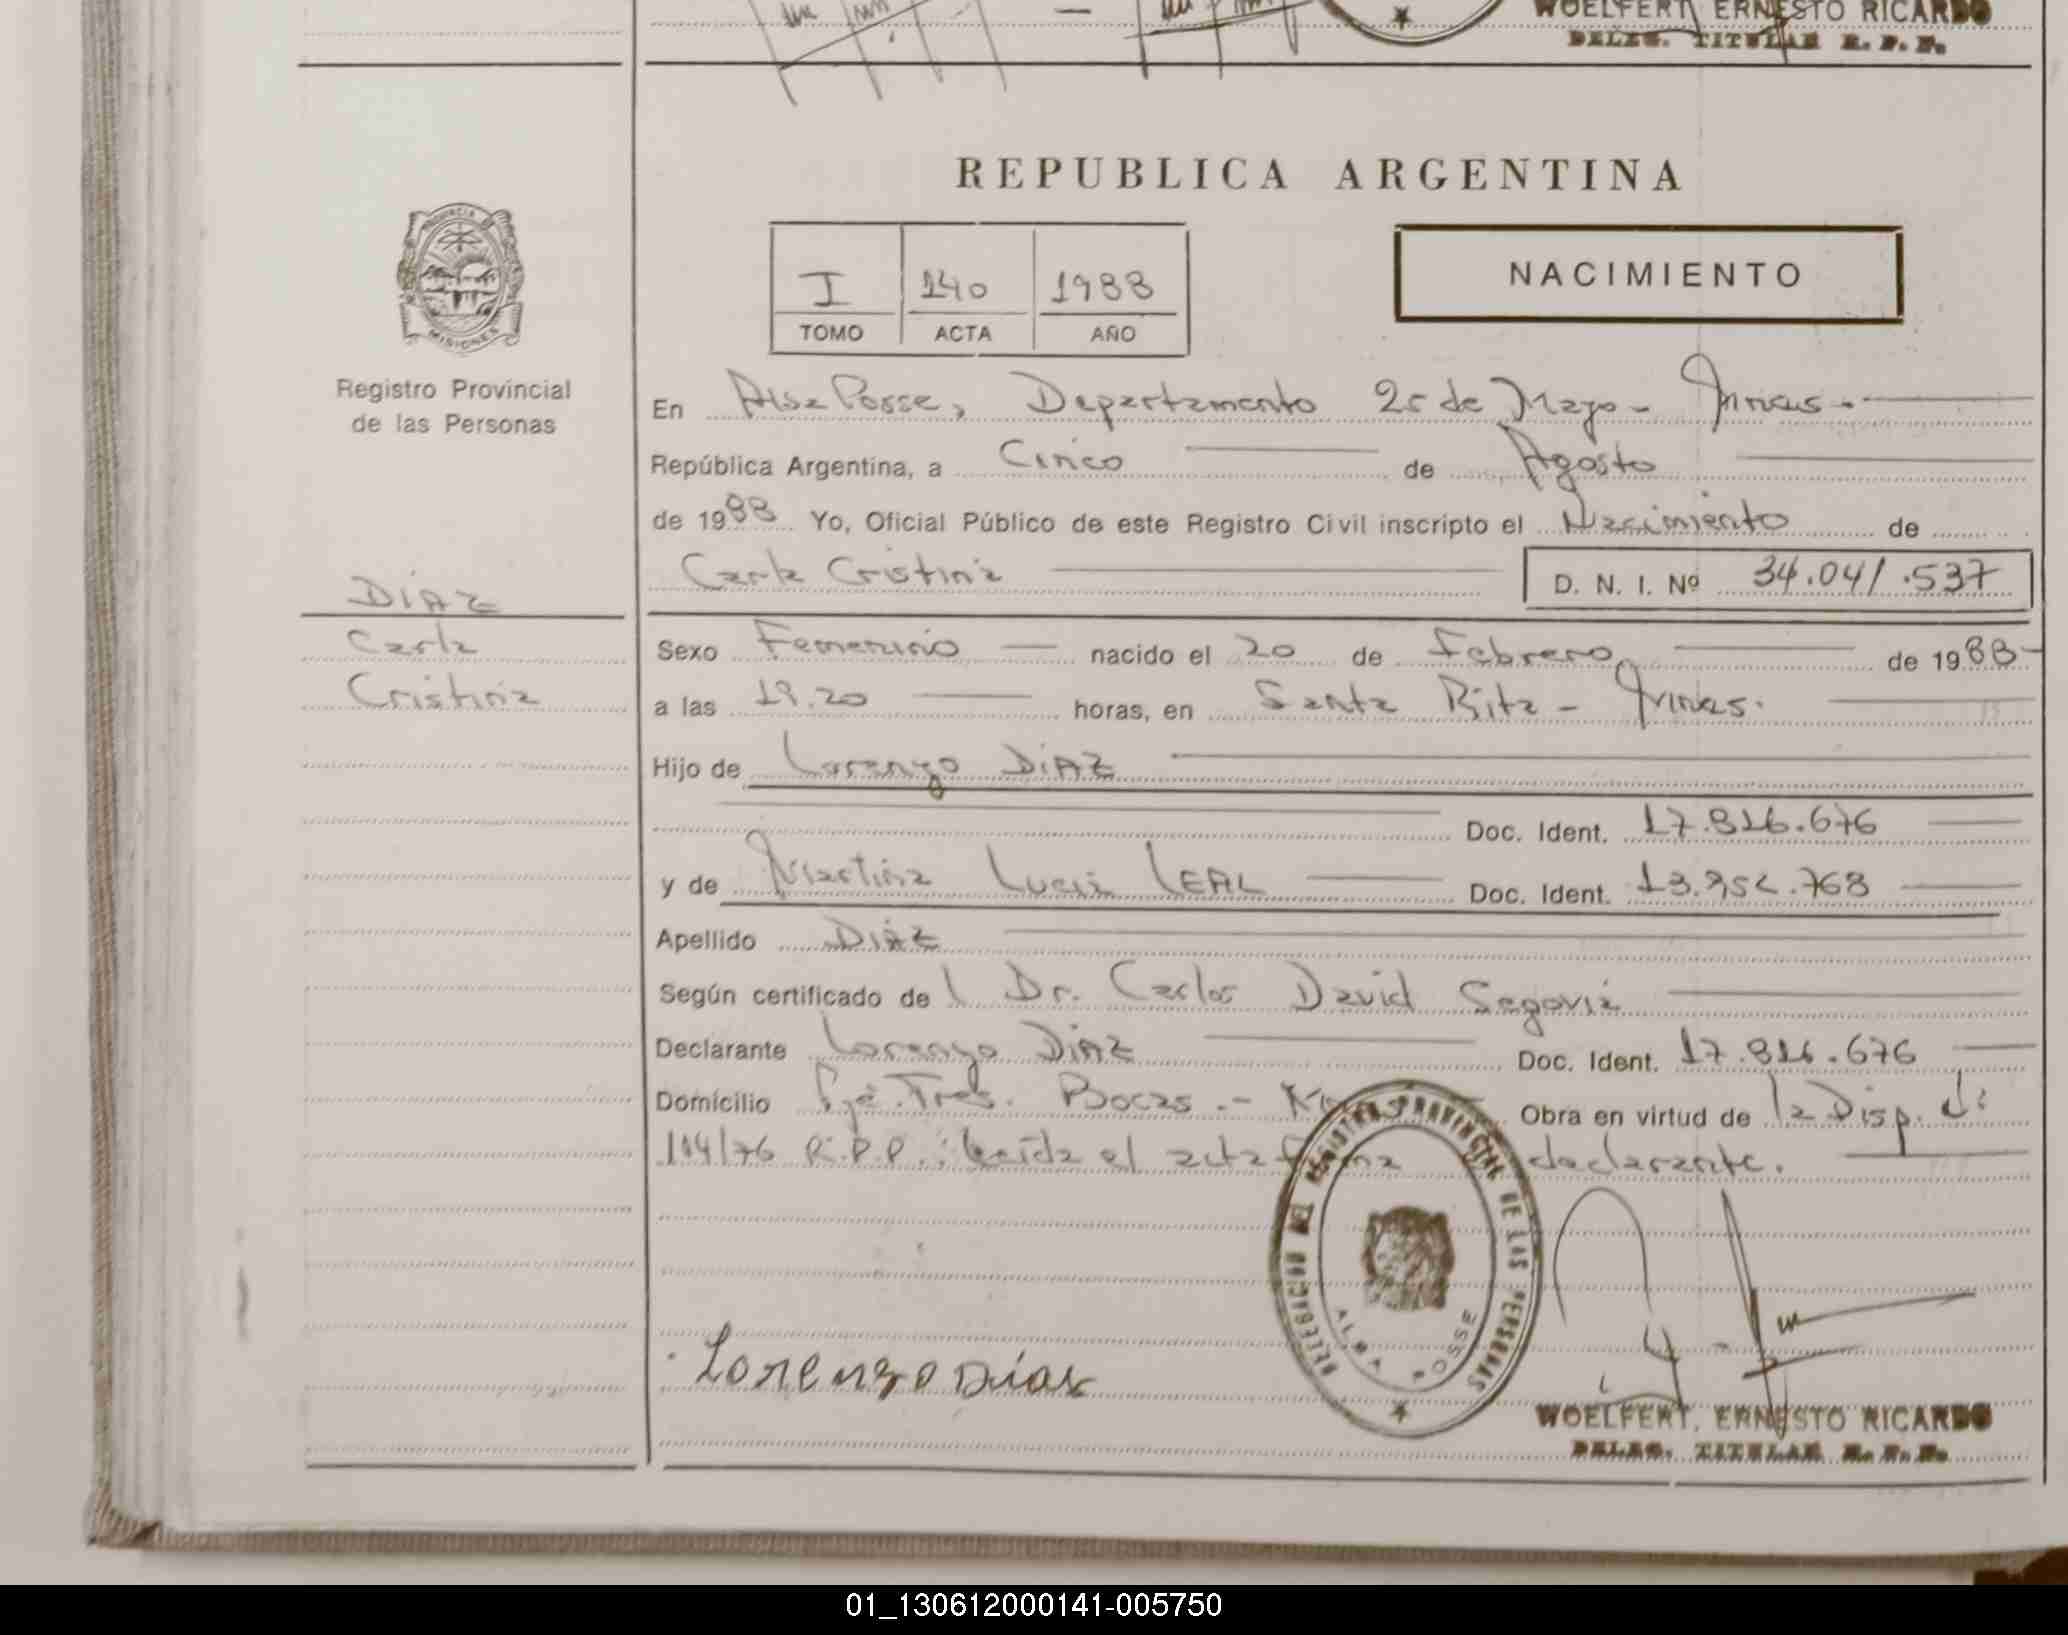 WOELFERT, ERNESTO RICARDO
DELEG. TITULAR R. P. P.
REPUBLICA ARGENTINA
PROVINCIA DE
MISIONES
Registro Provincial
de las Personas
I 140 1988
TOMO ACTA AÑO
NACIMIENTO
En Alba Posse, Departamento 25 de Mayo -
República Argentina, a Cinco de Agosto
de 1988 Yo, Oficial Público de este Registro Civil inscripto el Nacimiento de
Carla Cristina D. N. I. Nº 34.041.537
DIAZ
Carla
Cristina
Sexo Femenino nacido el 20 de Febrero de 1988-
a las 19.20 horas, en Santa Rita -
Hijo de Lorenzo DIAZ
Doc. Ident. 17.816.676
y de Martina Lucia LEAL Doc. Ident.
Apellido DIAZ
Según certificado de l Dr. Carlos David Segovia
Declarante Lorenzo DIAZ Doc. Ident. 17.816.676
Domicilio Pje. Tres Bocas.- Obra en virtud de la Disp.
114/76 R.P.P.: Leída el acta declarante.
DELEGACION DEL REGISTRO PROVINCIAL DE LAS PERSONAS
ALBA POSSE
Lorenzo Díaz
WOELFERT, ERNESTO RICARDO
DELEG. TITULAR R. P. P.
01_130612000141-005750